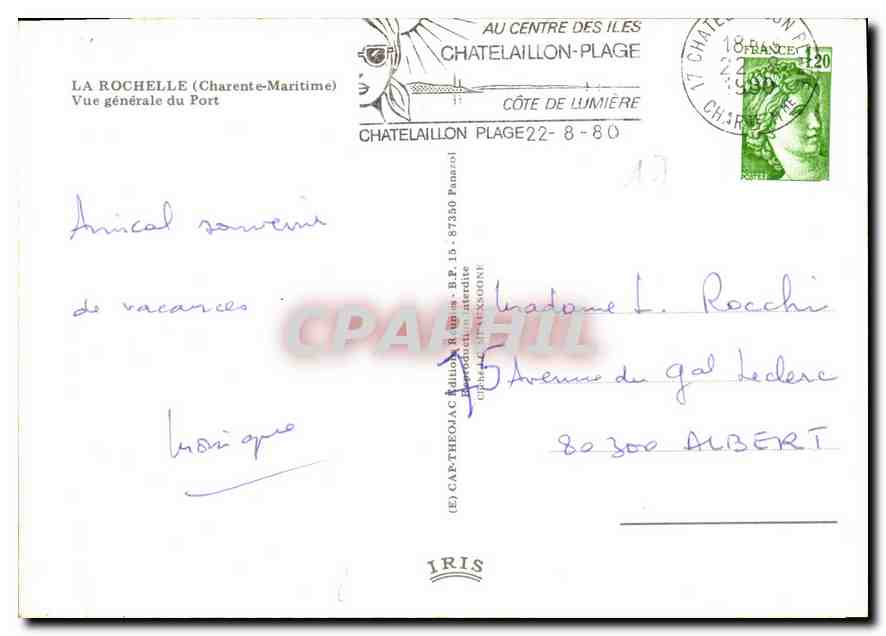 AU CENTRE DES ILES
CHATELAILLON-PLAGE
CÔTE DE LUMIÈRE
CHATELAILLON PLAGE 22-8-80
17 CHATEL
18H
22-8
1980
CHARTE MME
FRANCE
1,20
LA ROCHELLE (Charente-Maritime)
Vue générale du Port
Amical souvenir
de vacances.
Monique
(E) CAP-THEOJAC Editions Réunies - B.P. 15 - 87350 Panazol
Reproduction Interdite
CPAPHIL
Madame L. Rocchi
75 Avenue du Gal Leclerc
80300 ALBERT
IRIS